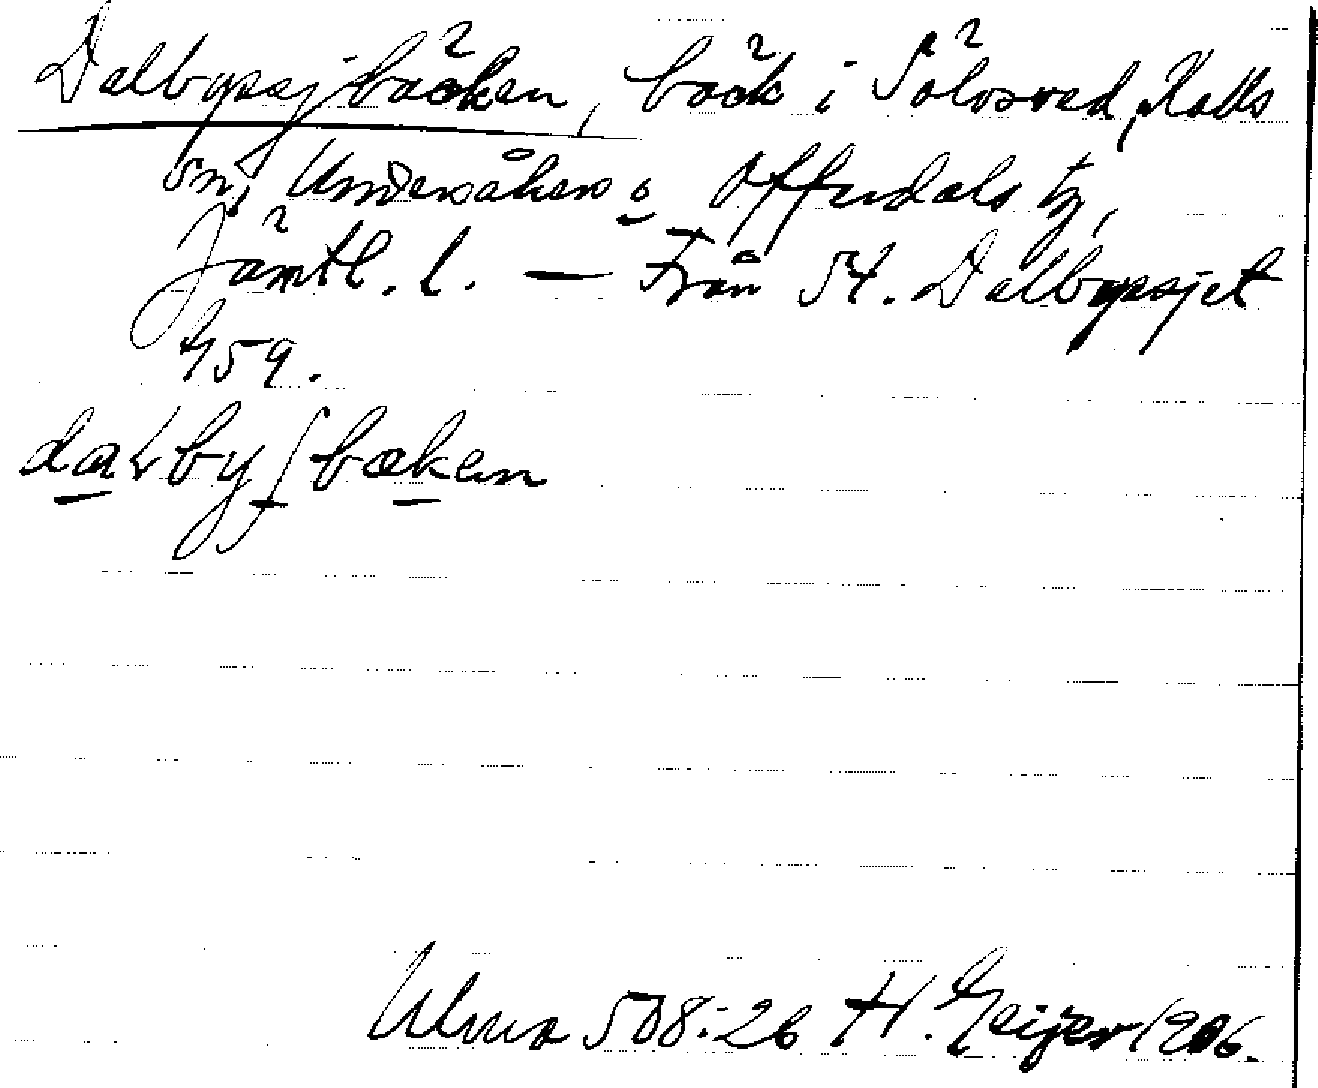 Dalbyssjbäcken, bäck i Sölvsved, Kalls
sn, Undersåkers o Offerdals tg,
Jämtl. l. — Från St. Dalbyssjet
459.
daɽbyʃbæken
Ulma 508:26 H. Geijer 1906.